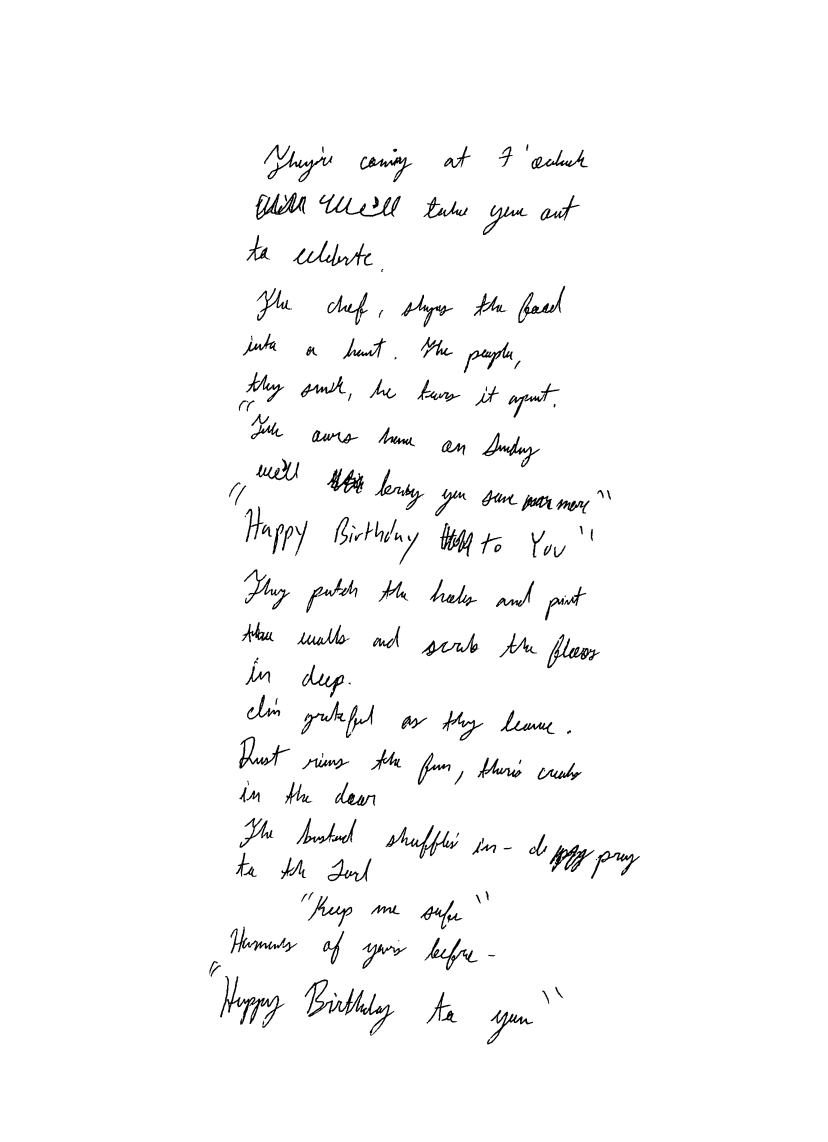 They're coming at 7 'oclock
We'll take you out
to celebrate.
The chef, shapes the food
into a heart. The people,
they smile, he tears it apart.
"Jack ours home on Sunday
we'll bring you some more"
"Happy Birthday to You"
They patch the holes and paint
the walls and scrub the floors
in deep.
I'm grateful as they leave.
Dust rims the fan, there's creaks
in the door
The bastard shuffles in - I pray
to the Lord
"Keep me safe"
Hummms of years before -
"Happy Birthday to you"